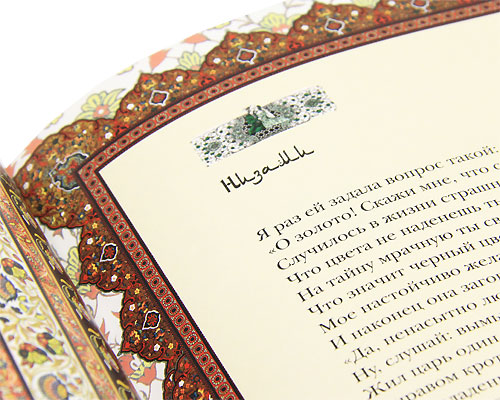 Низами
Я раз ей задала вопрос такой:
«О золото! Скажи мне, что с
Случилось в жизни
Что цвета не наденешь ты
На тайну мрачную ты
Что значит черный
Мое настойчиво
И наконец она
«Да, ненасытно
Ну, слушай:
Жил царь, один
правом